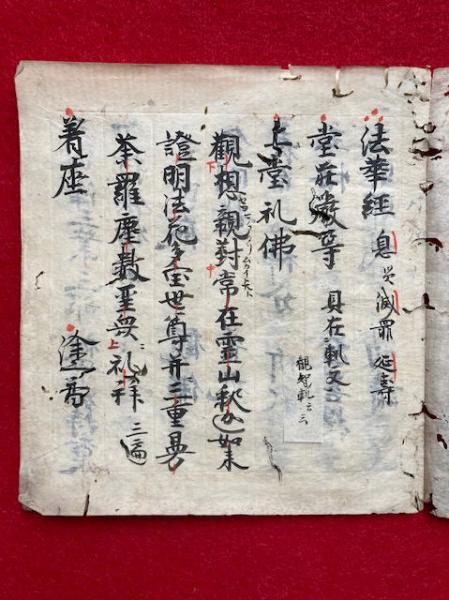 法華經 息災 滅罪 延壽
堂莊嚴等 具在軌文
觀智軌云云
上堂礼佛
觀想親對常在靈山釈迦如来
證明法花多宝世尊并三重曼
荼羅塵數聖衆 礼拜 三遍
着座 塗香